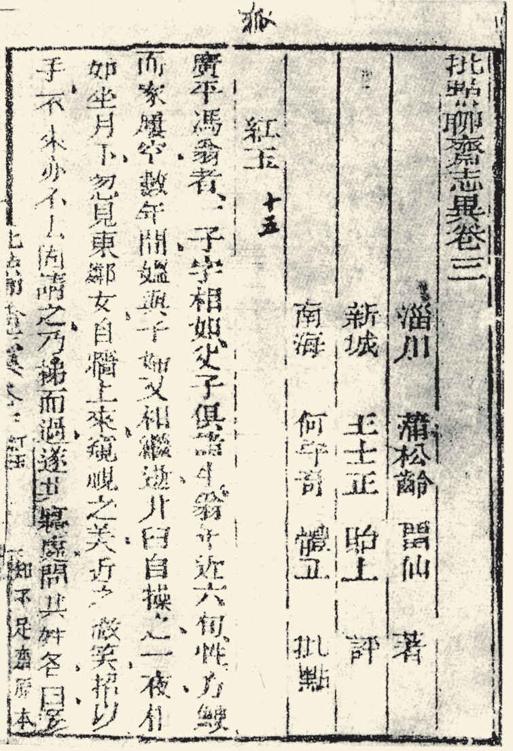 狐
批點聊齋志異卷三
淄川 蒲松齡 留仙 著
新城 王士正 貽上 評
南海 何守奇 體正 批點
紅玉 十五
廣平馮翁者一子字相如父子俱諸生翁年近六旬性方鯁
而家屢空數年間媼與子婦又相繼逝井臼自操之一夜相
如坐月下忽見東鄰女自牆上來窺視之美近之微笑招以
手不來亦不去固請之乃梯而過遂共寢處問其姓名曰
知不足齋原本